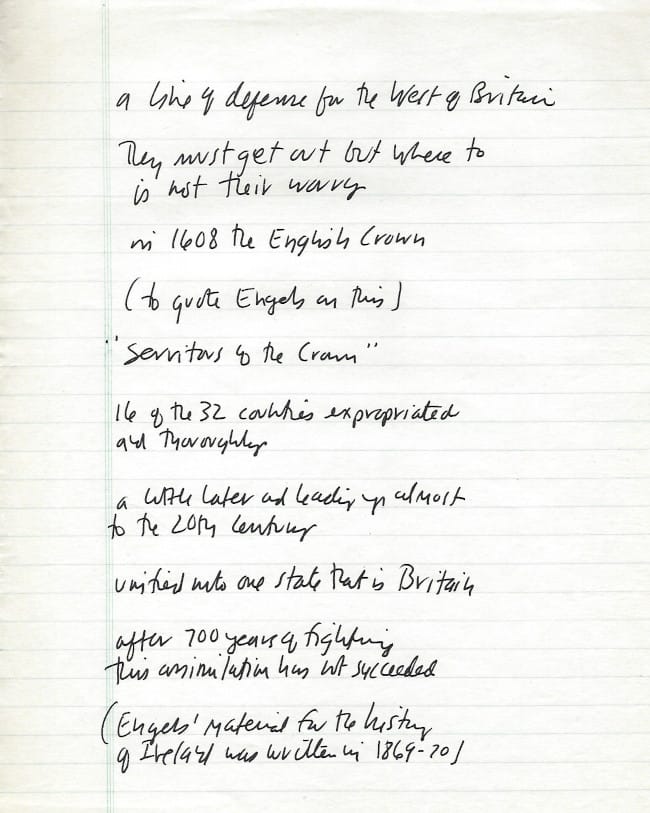 a line of defense for the West of Britain
They must get out but where to
is not their worry
in 1608 the English Crown
(to quote Engels on this)
"Servitors to the Crown"
16 of the 32 counties expropriated
and thoroughly
a little later and leading up almost
to the 20th Century
unified into one state that is Britain
after 700 years of fighting
this assimilation has not succeeded
(Engels' material for the history
of Ireland was written in 1869-70)